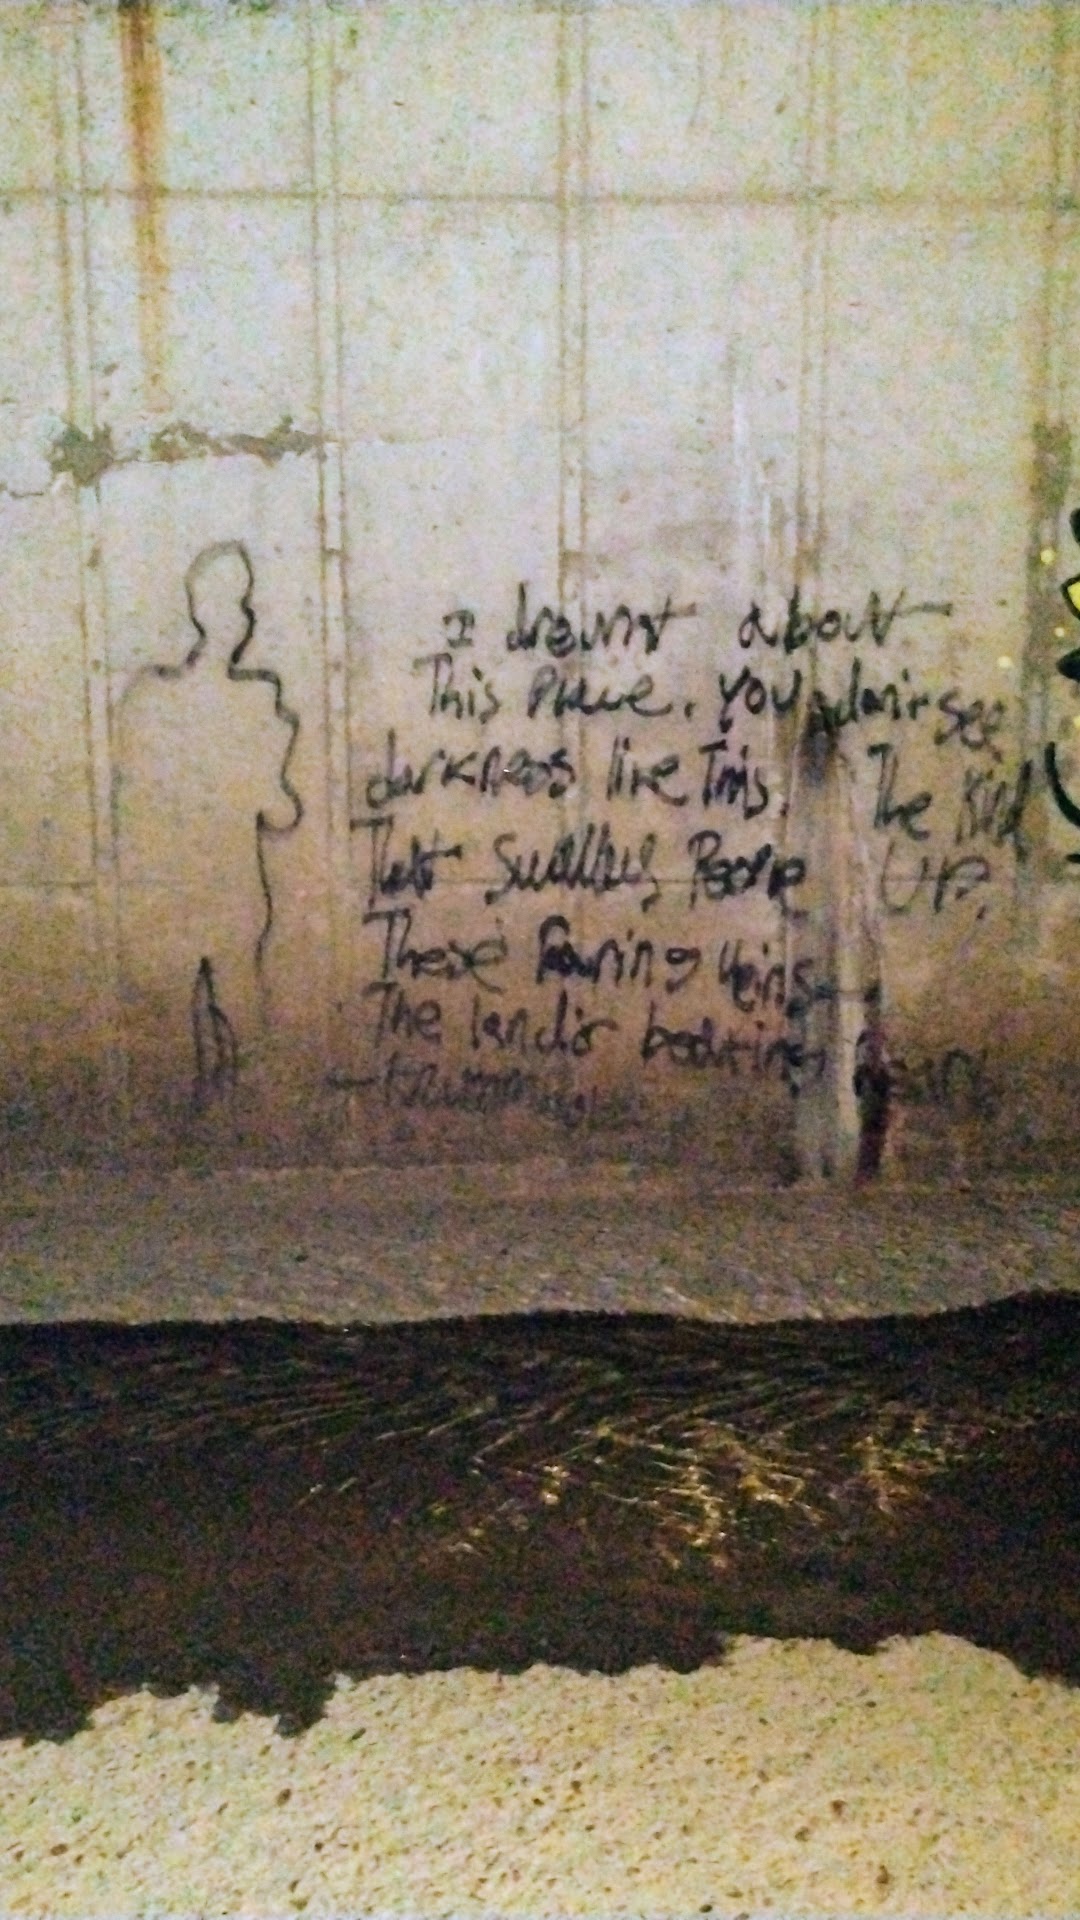 I dreamt about
This Place. You don't see
darkness like This. The Kind
That Swallows People UP.
These Roaring Veins
The land's beating